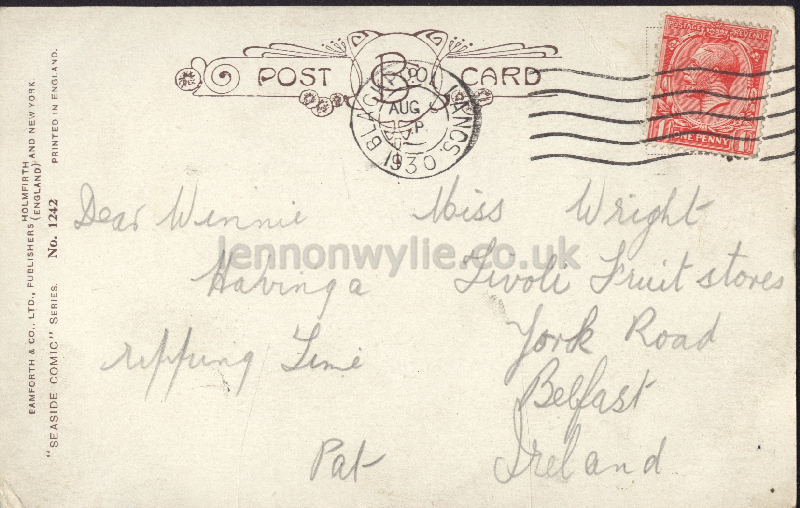 POST CARD
POSTAGE REVENUE
ONE PENNY
BLACKPOOL LANCS.
AUG
1930
BAMFORTH & CO., LTD., PUBLISHERS HOLMFIRTH (ENGLAND) AND NEW YORK
"SEASIDE COMIC" SERIES. No. 1242 PRINTED IN ENGLAND.
Dear Winnie
Having a
ripping Time
Pat
Miss Wright
Tivoli Fruit stores
York Road
Belfast
Ireland
lennonwylie.co.uk